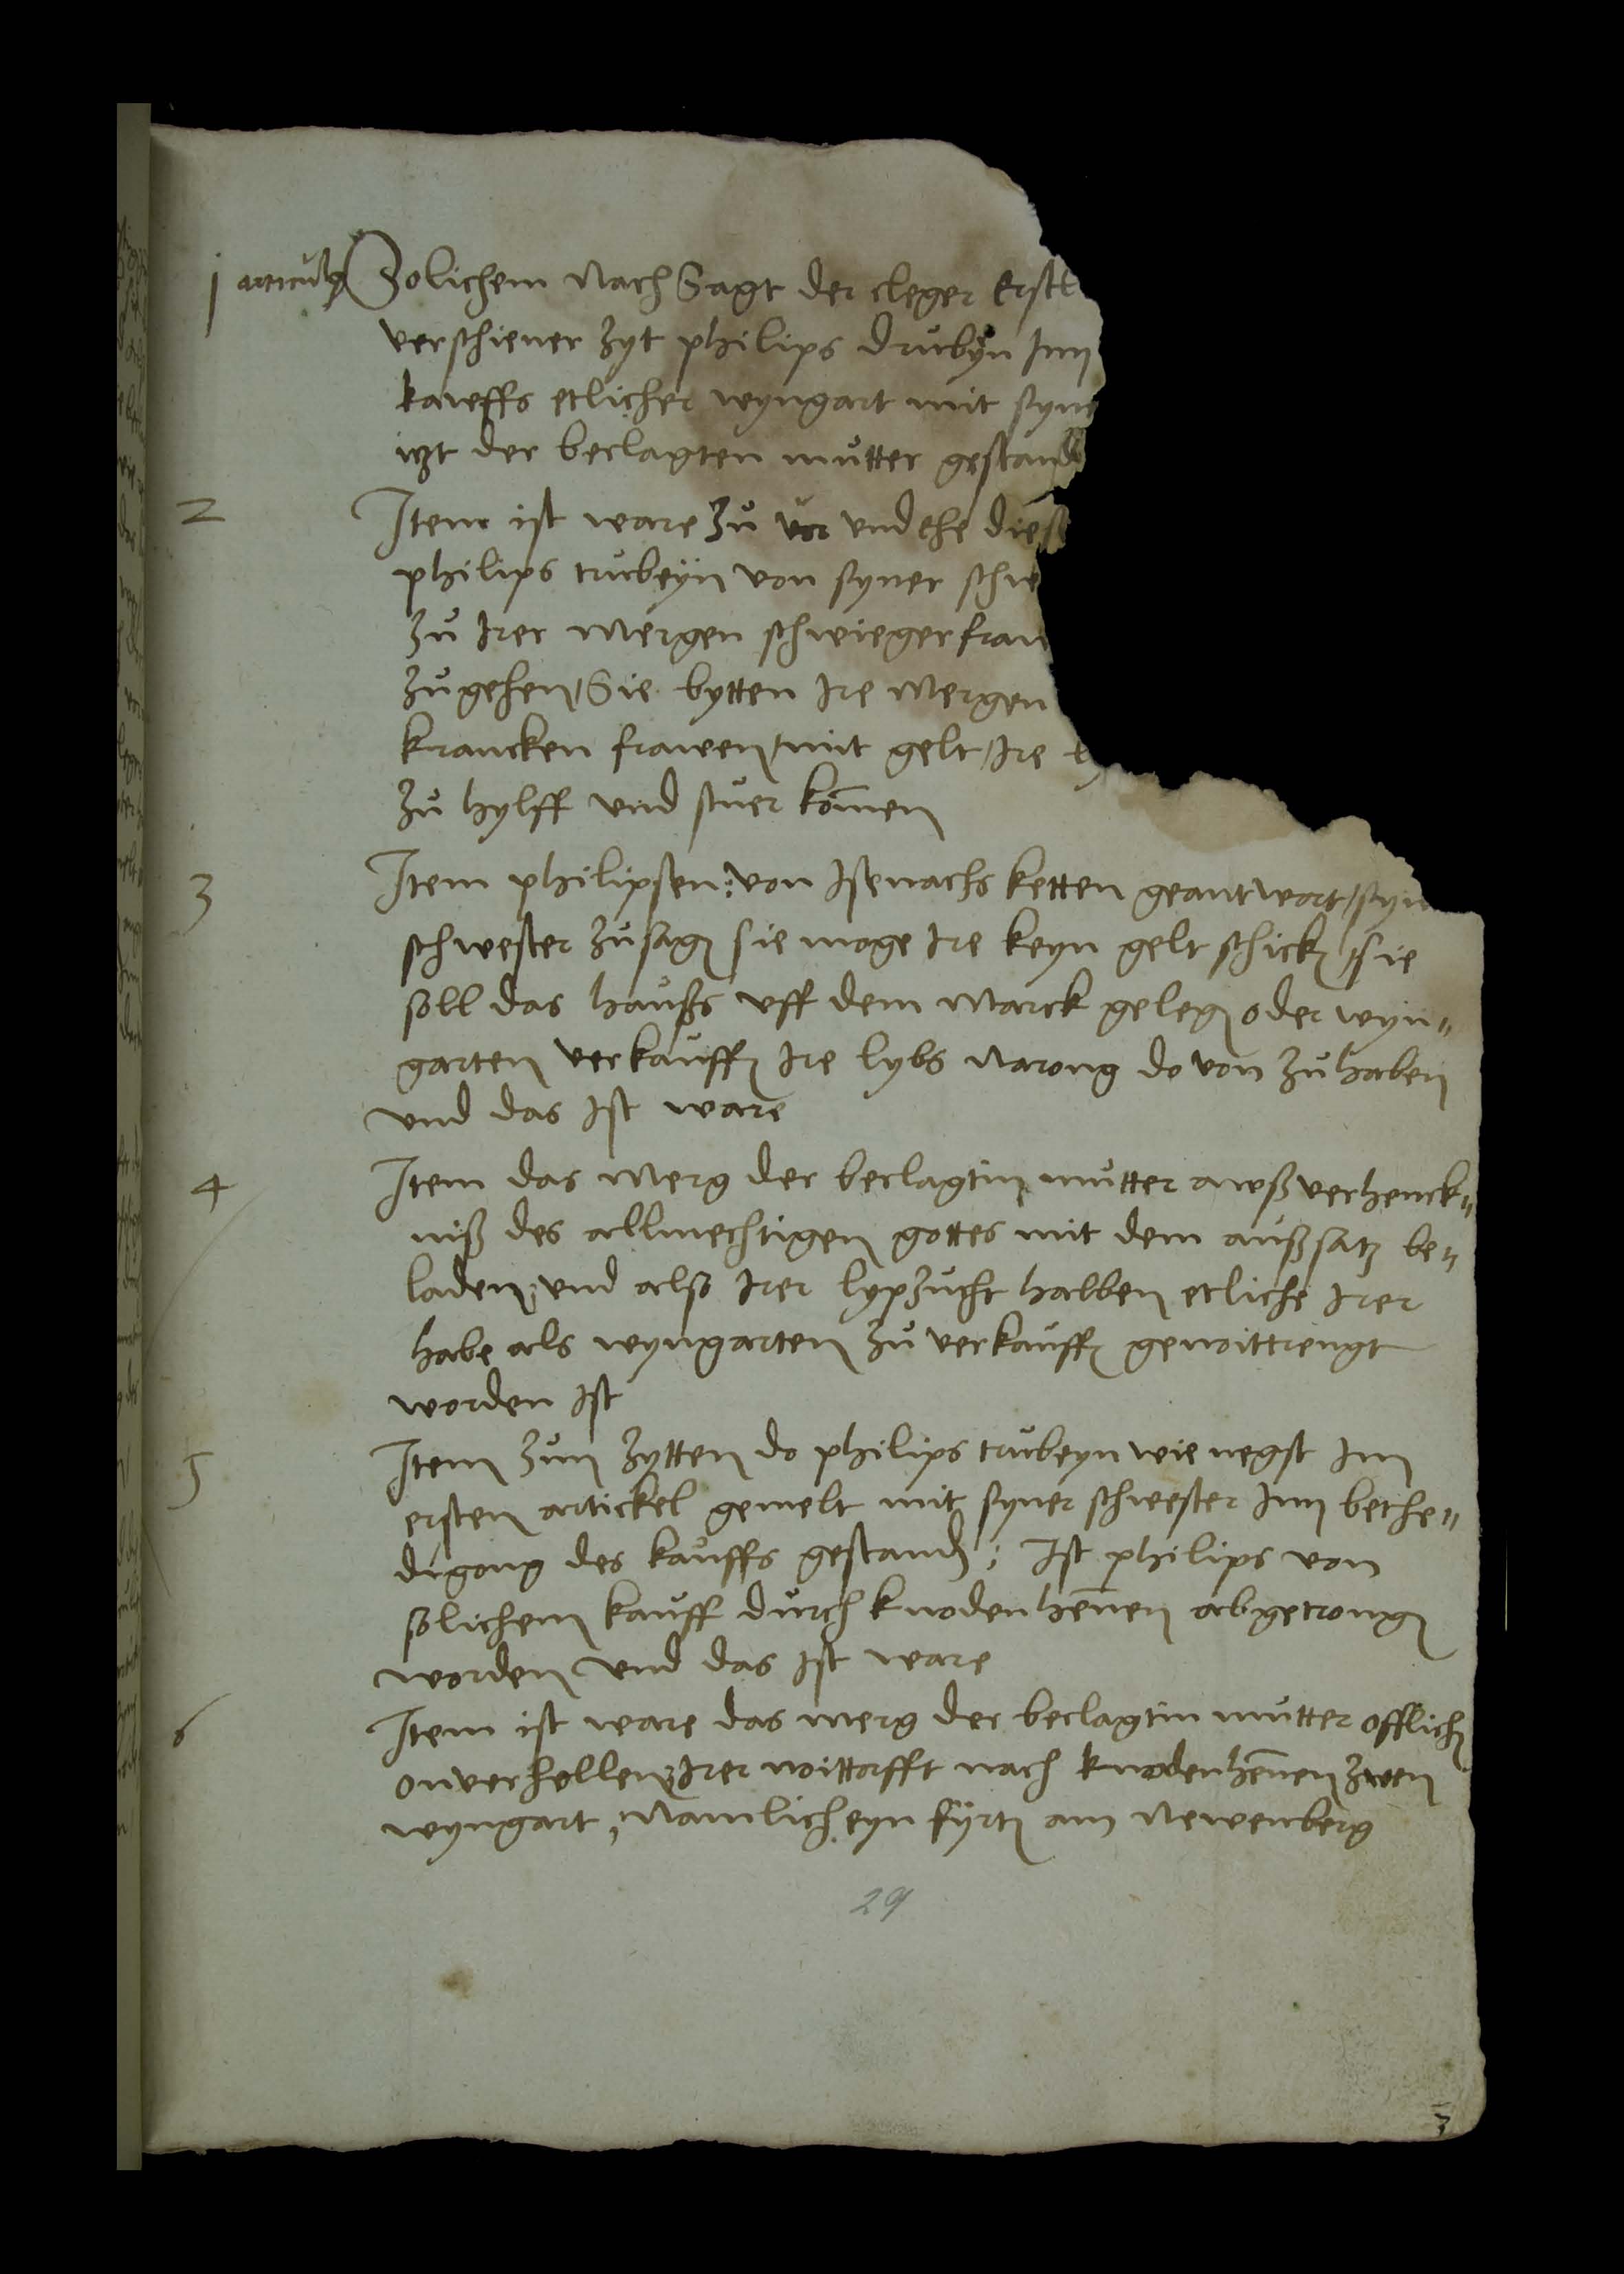 j articulus Solichem nach Sagt der cleger Erstl
verschiener zyt philips drubÿn Inn
kawffs etlicher wyngart mit syne
itzt der beclagten můtter gestand
2 Item ist ware zů vor vnd ehe dieß
philips trubeÿn von syner schwe
zů Irer Mergen schwieger fraw
zů gehen / Sie bytten Ire Mergen
krancken frawen / mit gelt / Ire
zů hylff vnd stuer kom̄en
3 Item philipsen: von Isenachs ketten geantwort / syn
schwester zů sagen sie moge Ire keyn gelt schicken / sie
soll das haußs vff dem Marck gelegen oder wyn"
garten verkauffen Ire lybs Narong do von zů haben
vnd das Ist ware
4 Item das Merg der beclagtin můtter awß verhenck"
niß des allmechtigen gottes mit dem außsatz be"
laden, vnd also Irer lypzucht halben etliche Irer
habe als wyngarten zů verkauffen genoittrengt
worden Ist
5 Item zun zytten do philips trubeyn wie negst Im
ersten artickel gemelt mit syner schwester Inn bethe"
digong des kauffs gestanden; Ist philips von
solichem kauff durch knoden hen̄en abgetrongen
worden vnd das Ist ware
6 Item ist ware das Merg der beclagtin mutter offlichen
onverhollen, Irer noittorfft nach knoden hen̄en zwen
wyngart, Namlich eyn fÿrtz am Newenberg
29
3